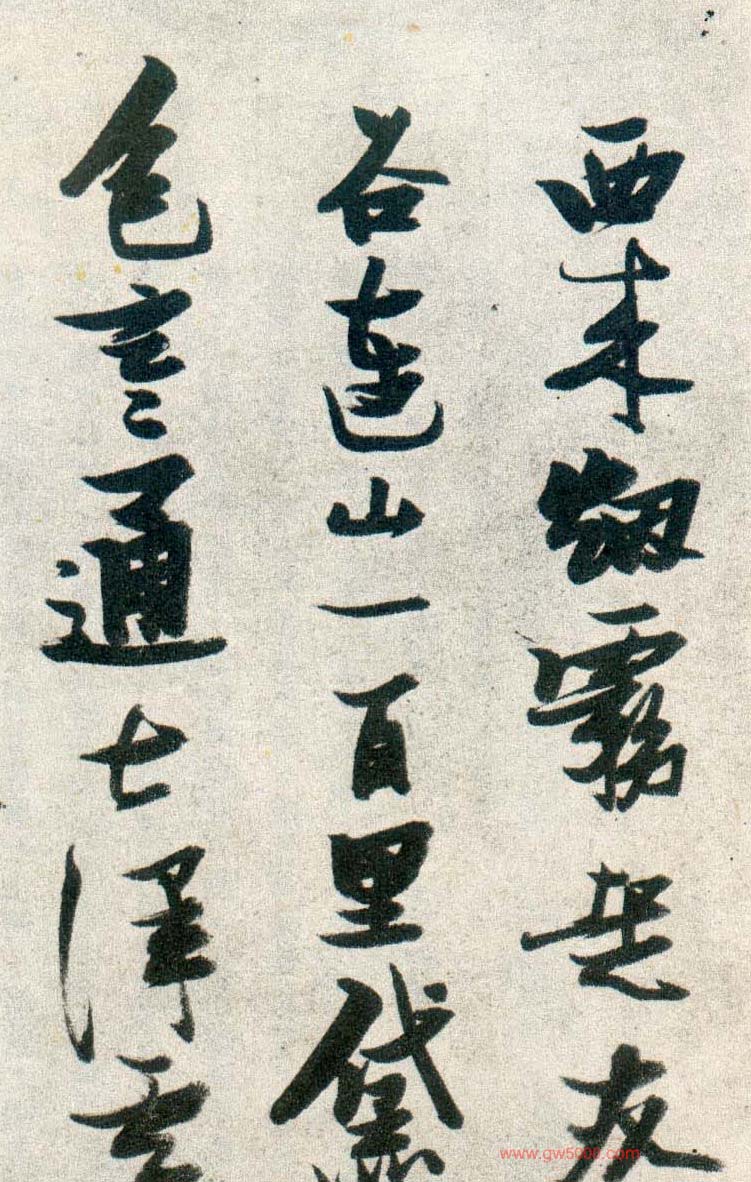 西来烟霧
谷連山一百里黛
色通七澤
www.gw5000.com